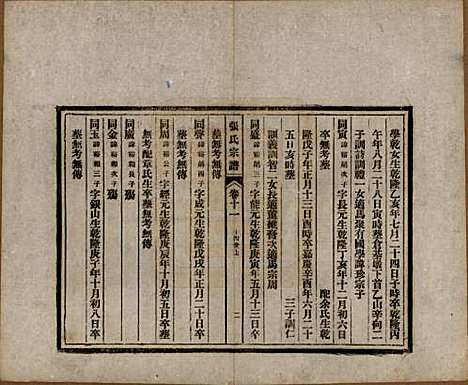 學乾女生乾隆乙亥年七月二十四日子時卒乾隆丙
午年八月二十八日寅時葬倉基墩下首乙山辛向二
子訓詩訓禮一女適馬榮貴國學諱珍宗子
同寅 字長元生乾隆丁亥年十二月初六日
卒無考 配余氏生乾
隆戊子年正月十三日時卒嘉慶辛酉年六月二十
五日亥時葬 三子訓仁
訓義訓智二女長適董繼務次適馬宗周
同盛 字能元生乾隆庚寅年五月十三日卒
葬無考無傳
張氏宗譜 卷十一 二
同聲 子字成元生乾隆戊戌年正月二十日卒
葬無考無傳
同周 子字經元生乾隆庚辰年十月初五日卒葬
無考配章氏生卒葬無考無傳
同廣 長子殤
同金 次子殤
同玉 三子字鏡山生乾隆庚子年十月初八日卒